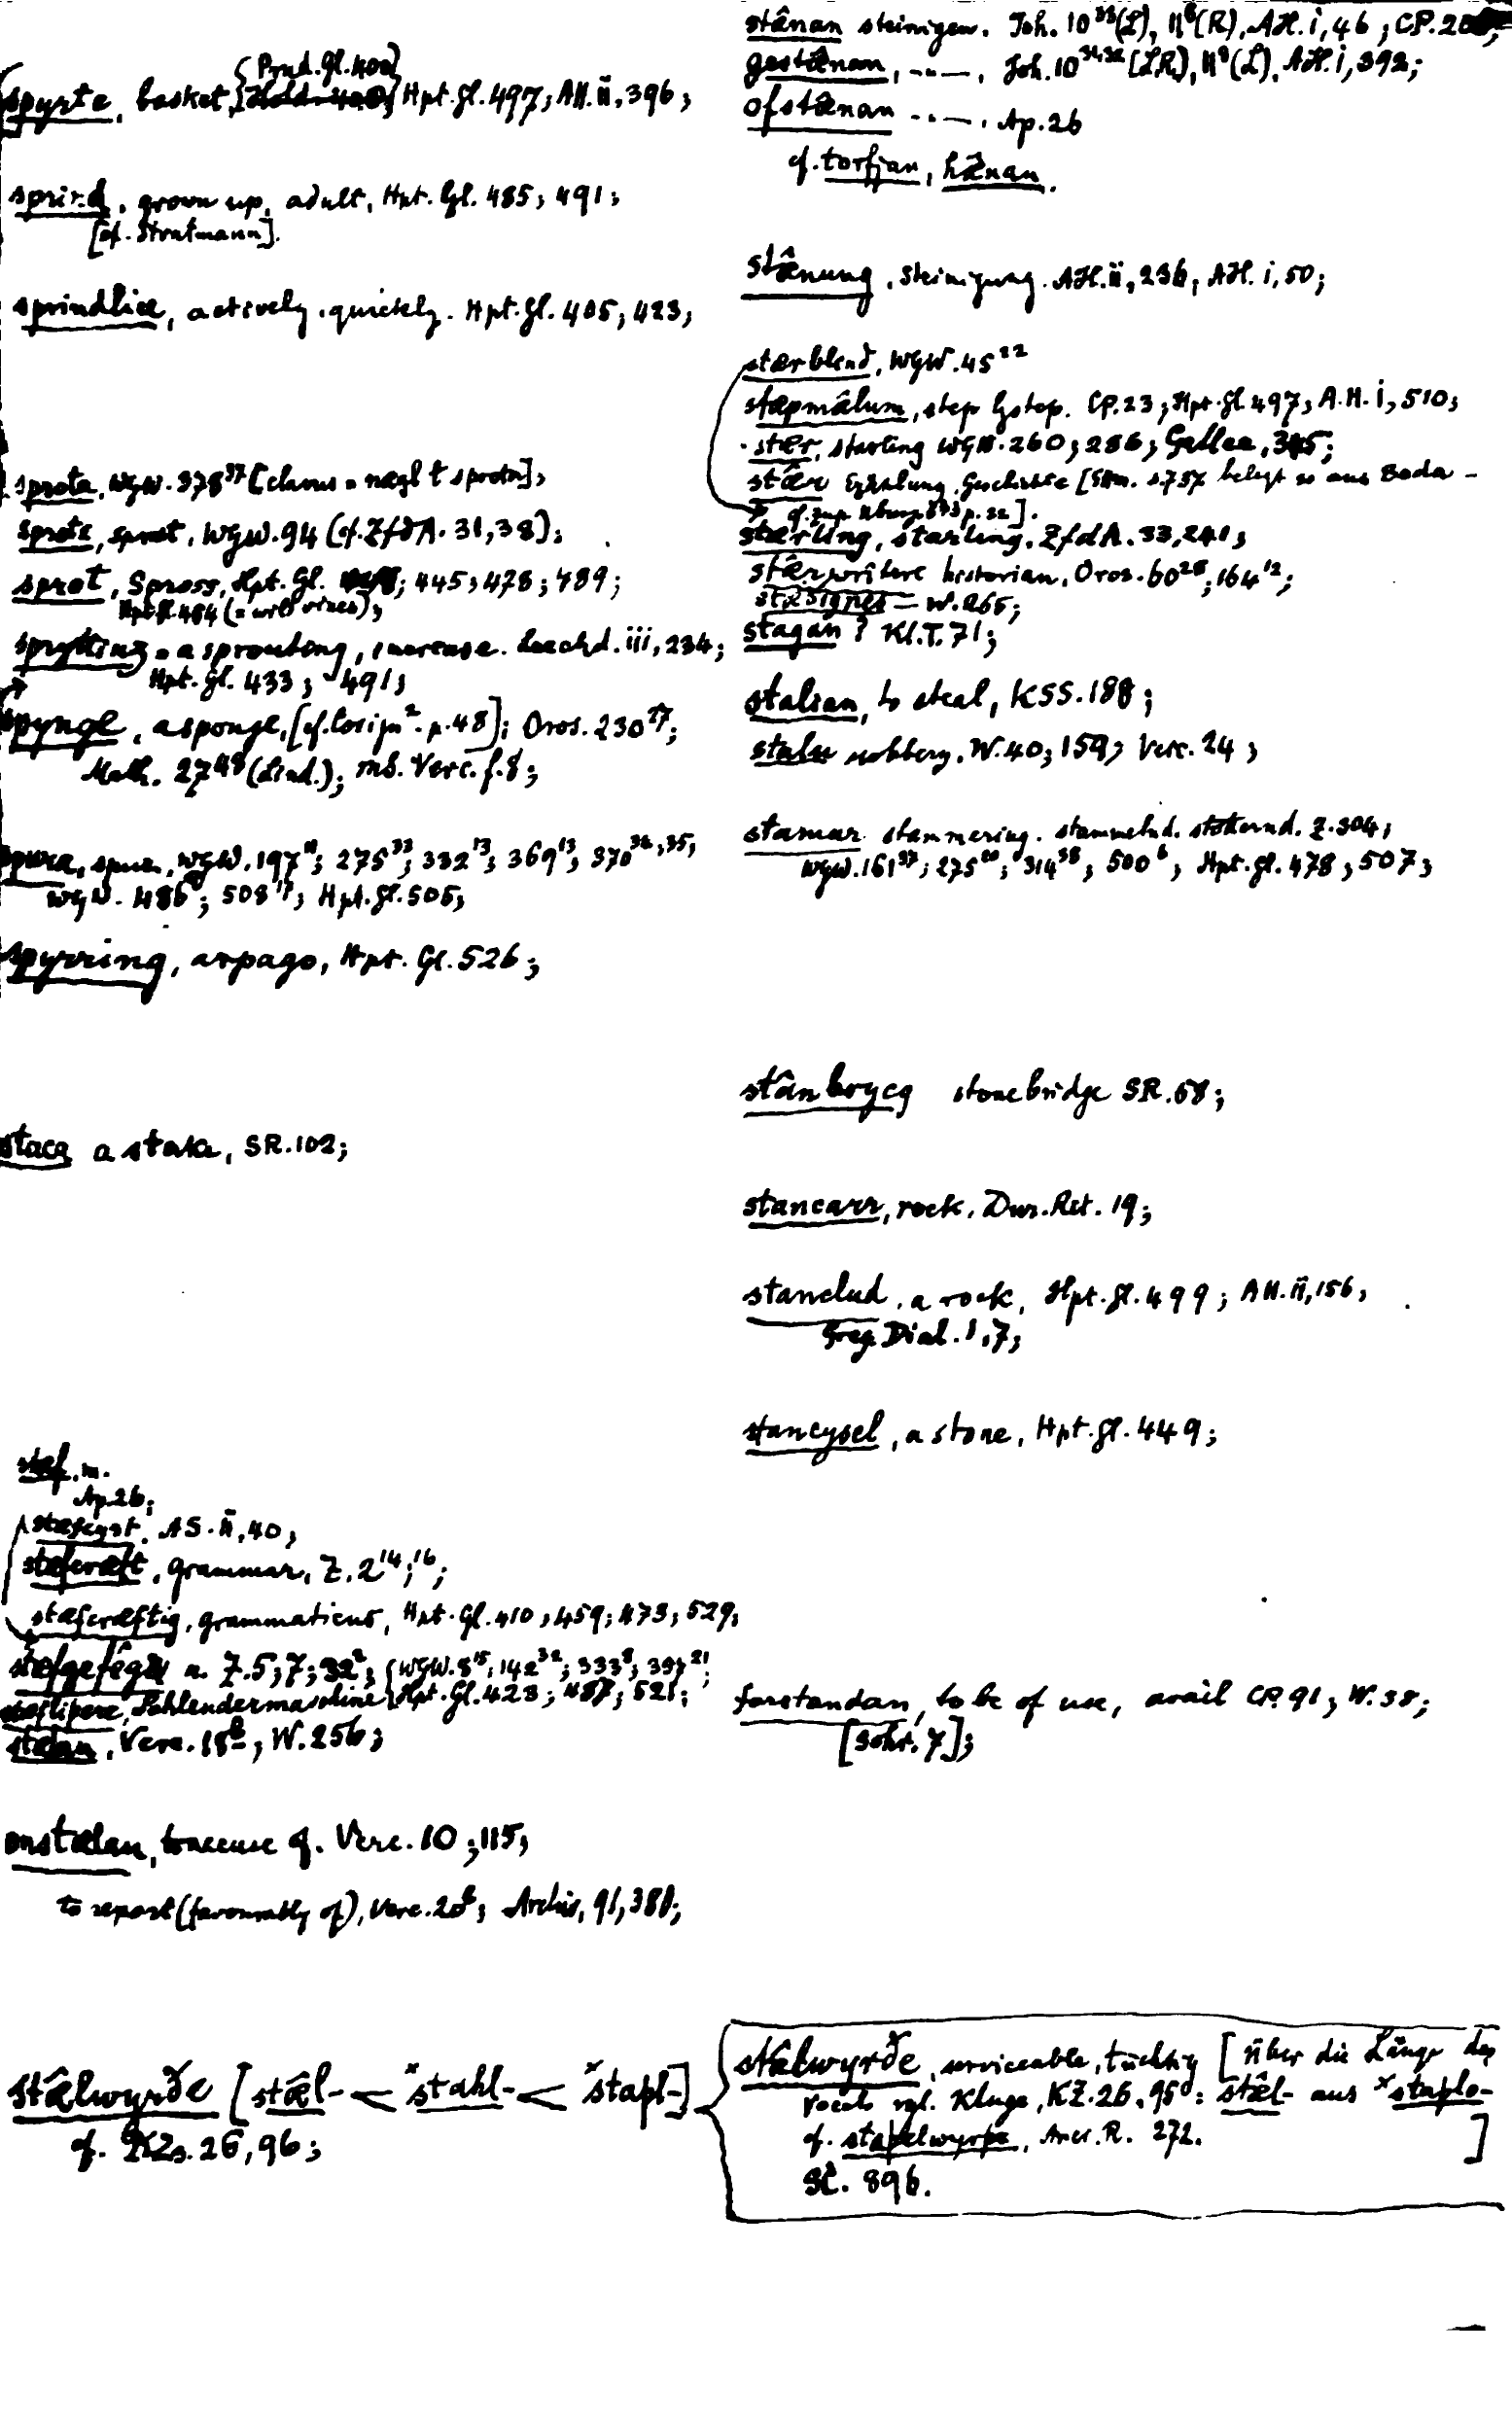 {Prud. Gl. 400}
spyrte, basket, Hpt. Gl. 497; AH. ii, 396;
sprind, grown up, adult, Hpt. Gl. 485; 491;
[cf. Stratmann].
sprindlice, actively, quickly. Hpt. Gl. 405; 423;
sprota, WgW. 378³⁷ [clavus = nægl ł sprota];
sprote, sprot, WgW. 94 (cf. ZfdA. 31, 38);
sprot, Spross, Hpt. Gl. 445; 478; 489;
Hpt. Gl. 484
sprytting = a sprouting, increase. Leechd. iii, 234;
Hpt. Gl. 433; 491;
spynge, a sponge, [cf. Cosijn² p. 48]; Oros. 230²⁷;
Math. 27⁴⁸ (Lind.); ms. Verc. f. 8;
spura, spur, WgW. 197¹¹; 275³³; 332¹³; 369¹³; 370³⁴,³⁵;
WgW. 486⁸; 508¹⁷; Hpt. Gl. 505;
spyrring, arpago, Hpt. Gl. 526;
stacg a stake, SR. 102;
stæf. m.
Ap. 26;
stæfcyst, AS. ii, 40;
stæfcræft, grammar, Z. 2¹⁴; ¹⁶;
stæfcræftig, grammaticus, Hpt. Gl. 410; 459; 473; 529;
stæfgefêg n. Z. 5; 7; 32²;
stæflipere, Schleudermaschine {WgW. 8¹⁵; 142³²; 333⁸; 397²¹; Hpt. Gl. 423; 487; 521;
stælan, Verc. 18ᵇ; W. 256;
onstælan, to accuse of. Verc. 10; 115;
to report (favourably of), Verc. 20ᵇ; Archiv, 91, 381;
stǣlwyrðe [stæl- < ˣstahl- < ˣstapl-]
cf. KZs. 26, 96;
stânan steinigen. Joh. 10³³(L), 11⁸(R), AH. i, 46; CP.
gestænan, ..—, Joh. 10³¹,³² [LR], 11⁸(L), AH. i, 392;
ofstænan ..—. Ap. 26
cf. torfjan, hænan.
stænung, Steinigung. AH. ii, 236, AH. i, 50;
stærblind, WgW. 45²²
stæpmælum, step by step. CP. 23; Hpt. Gl. 497; A.H. i, 510;
stær, starling WgW. 260; 286; Gallée, 345;
stær Erzälung, Geschichte [Stm. s. 757 belegt es aus Beda -
stærling, starling, ZfdA. 33, 241;
stærwrîtere historian, Oros. 60²⁸; 164¹²;
W. 265;
stagan? Kl. T. 71;
stalian, to steal, KSS. 188;
stalu robbery, W. 40; 159; Verc. 24;
stamur stammering. stammelnd. stotternd. Z. 304;
WgW. 161³⁷; 275²⁰; 314³⁸; 500⁶; Hpt. Gl. 478; 507;
stânbrycg stonebridge SR. 68;
stancarr, rock, Dur. Rit. 19;
stanclud, a rock, Hpt. Gl. 499; AH. ii, 156;
Greg. Dial. 1, 7;
stancysel, a stone, Hpt. Gl. 449;
forstandan, to be of use, avail CP. 91; W. 38;
[Sohr. 7];
stǣlwyrðe, serviceable, tüchtig [über die Länge des
Vocals vgl. Kluge, KZ. 26, 95⁰: stæl- aus ˣstaplo-
cf. stapelwurþe, Ancr. R. 272. ]
SC. 896.